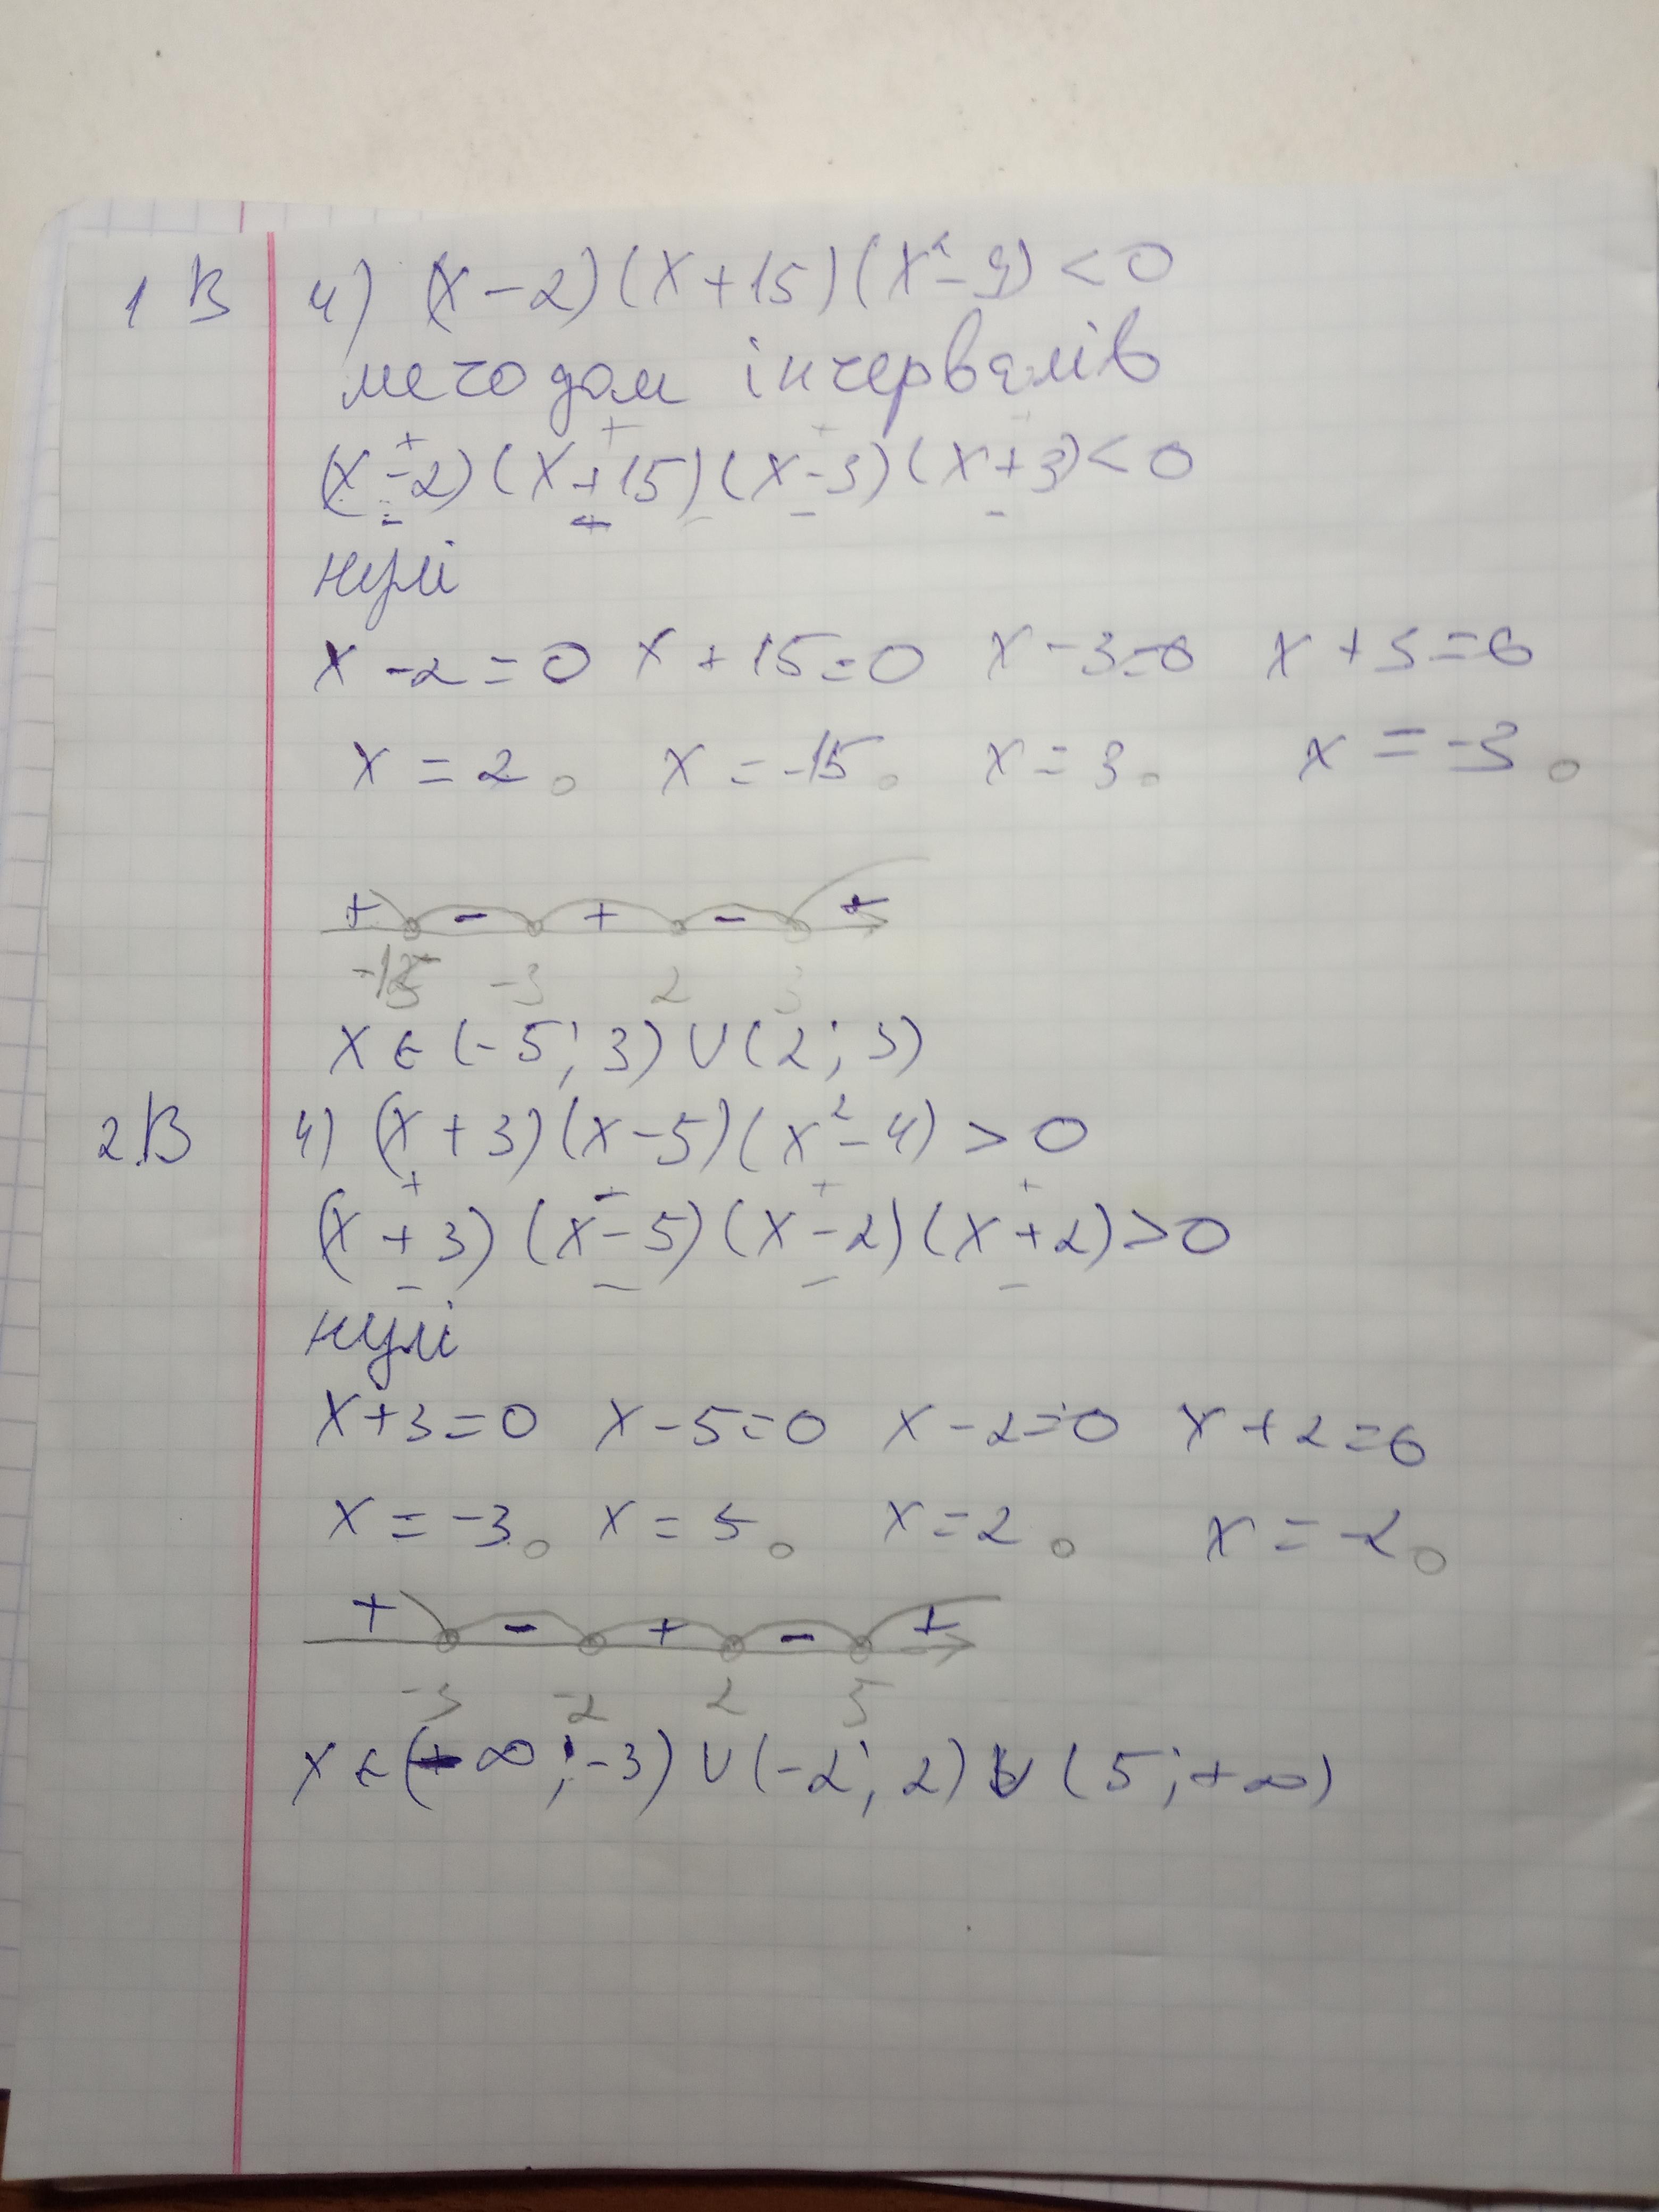 1 В 4) (x-2)(x+15)(x²-9)<0
методом інтервалів
+ + + +
(x-2)(x+15)(x-3)(x+3)<0
- - - -
нулі
x-2=0 x+15=0 x-3=0 x+3=0
x=2 x=-15 x=3 x=-3
+ - + - +
-15 -3 2 3
x∈(-5;3)∪(2;3)
2.В 4) (x+3)(x-5)(x²-4)>0
+ + + +
(x+3)(x-5)(x-2)(x+2)>0
- - - -
нулі
x+3=0 x-5=0 x-2=0 x+2=0
x=-3 x=5 x=2 x=-2
+ - + - +
-3 -2 2 5
x∈(-∞;-3)∪(-2;2)∪(5;+∞)